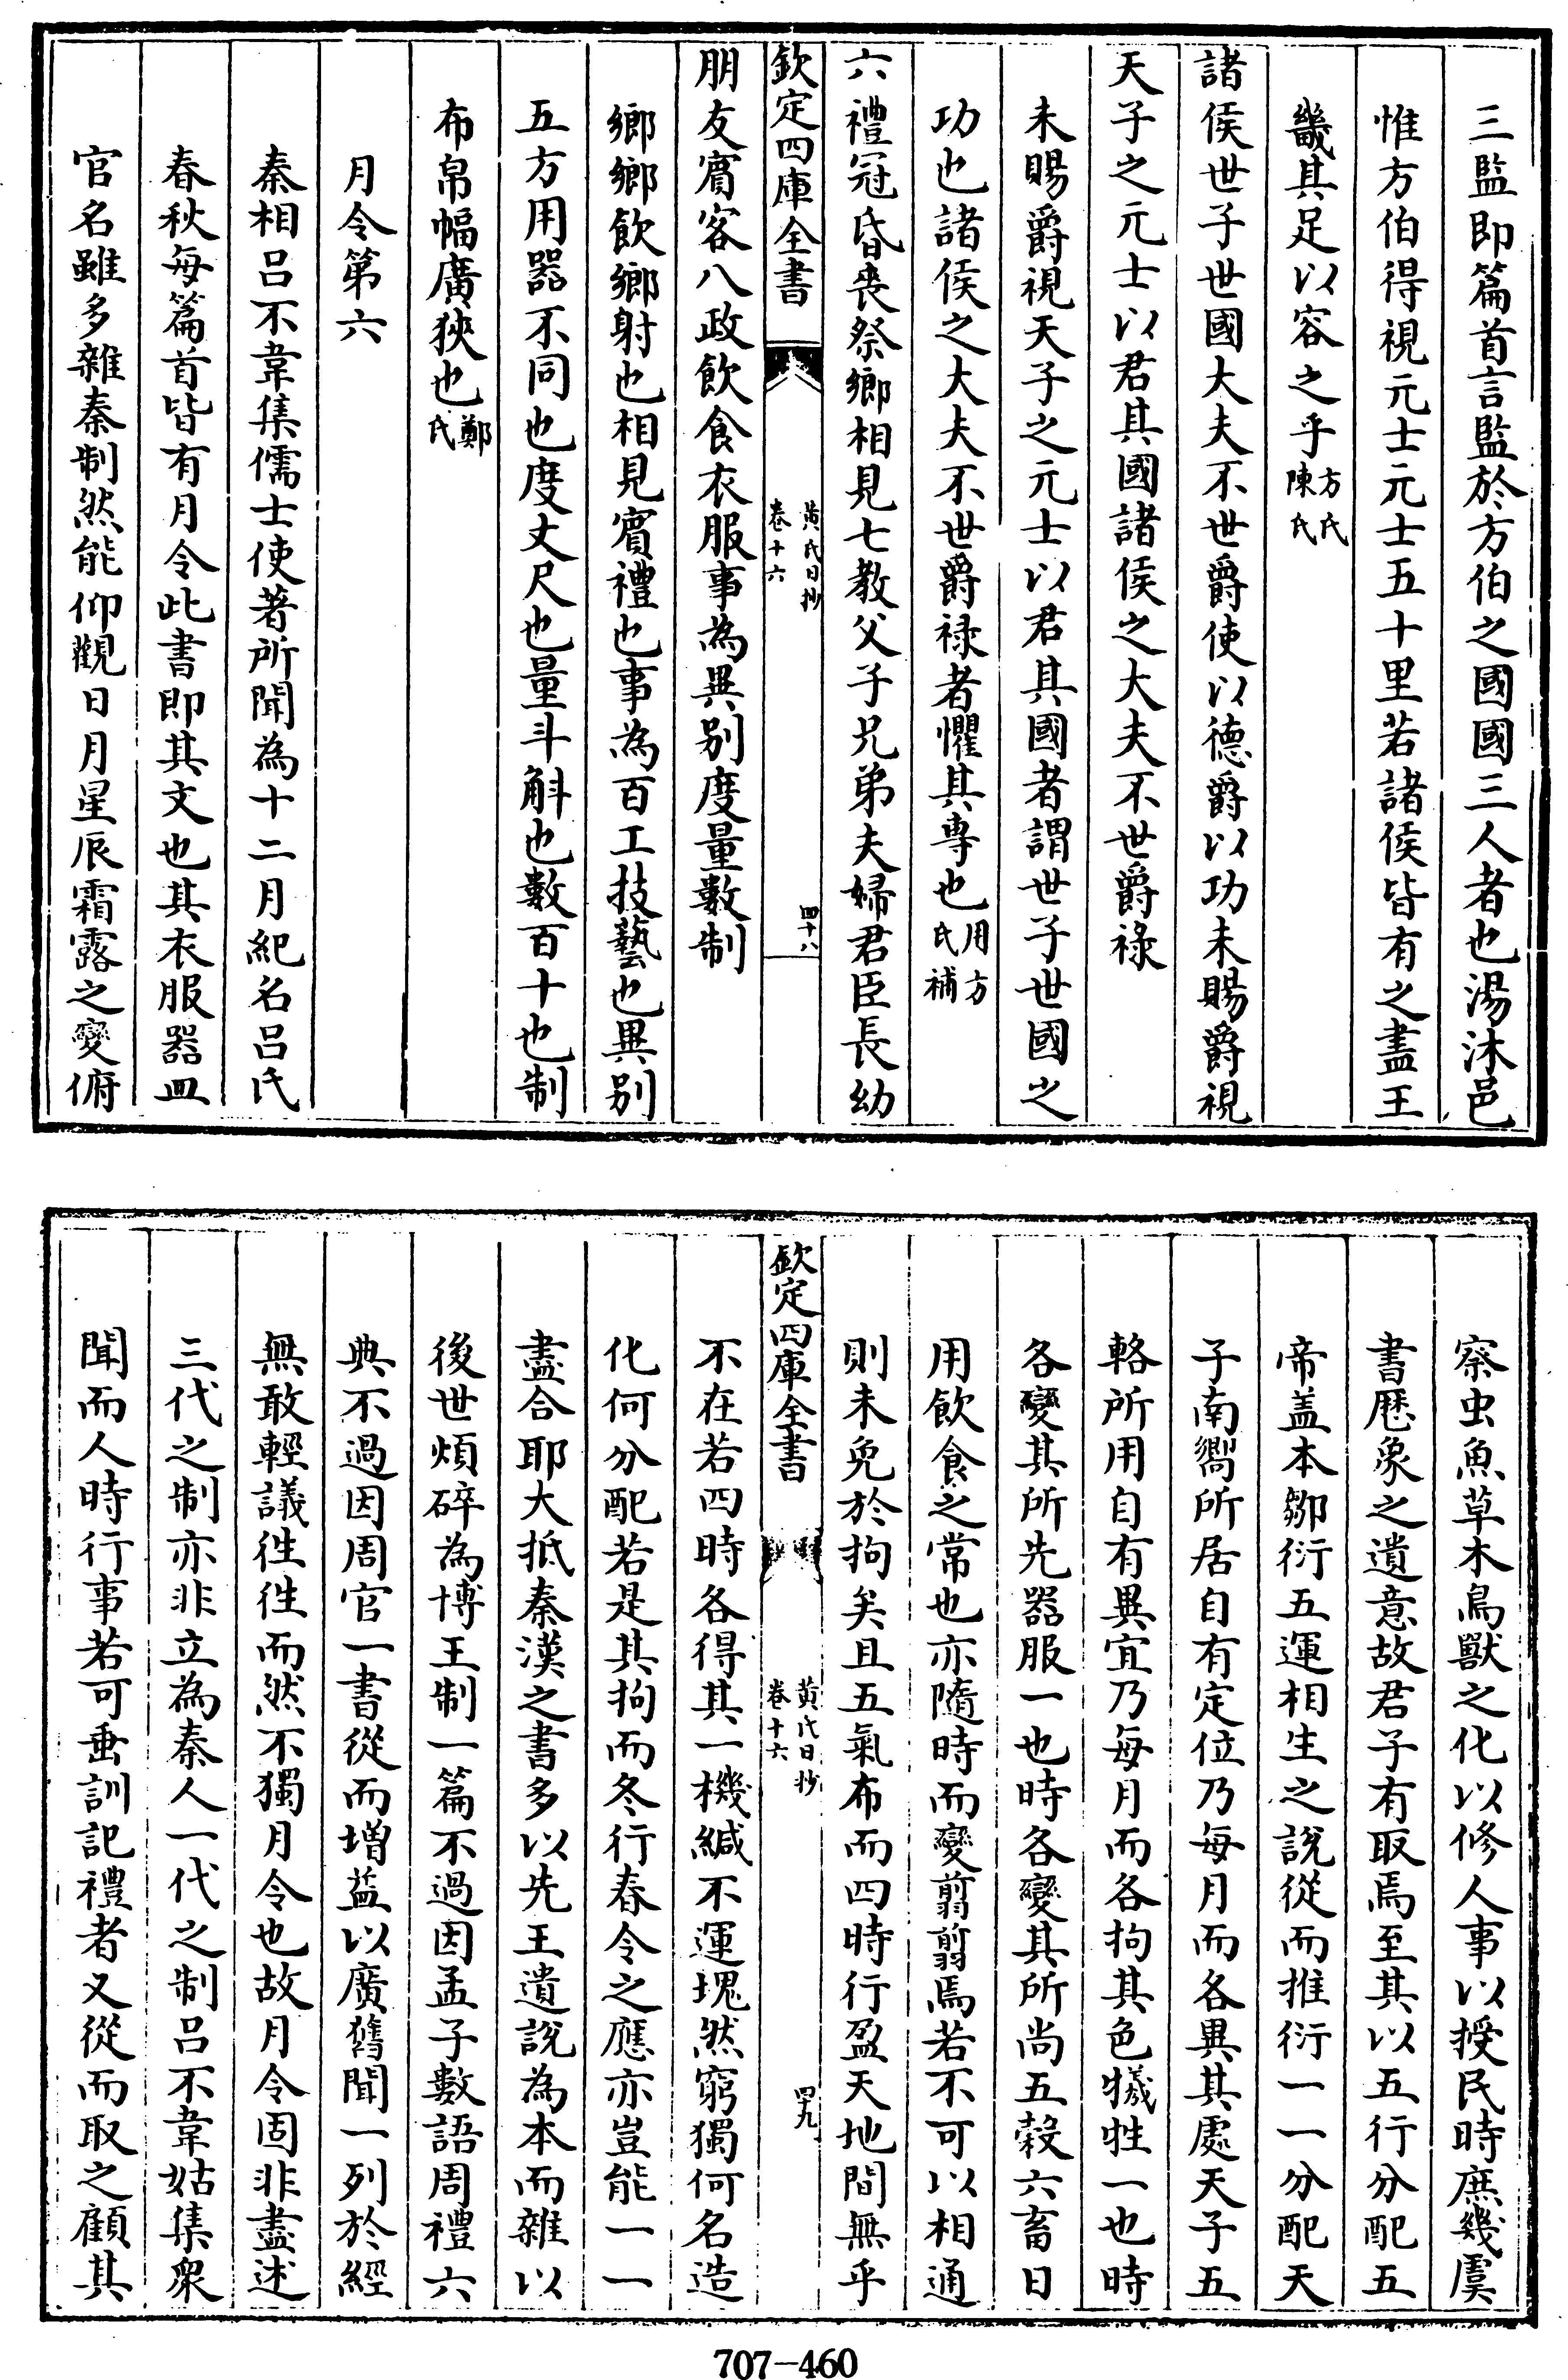 三監即篇首言監於方伯之國國三人者也湯沐邑
惟方伯得視元士元士五十里若諸侯皆有之盡王
畿其足以容之乎方氏陳氏
諸侯世子世國大夫不世爵使以德爵以功未賜爵視
天子之元士以君其國諸侯之大夫不世爵祿
未賜爵視天子之元士以君其國者謂世子世國之
功也諸侯之大夫不世爵祿者懼其專也用方氏補
六禮冠昏喪祭鄉相見七教父子兄弟夫婦君臣長幼
欽定四庫全書
黄氏日抄
卷十六
四十八
朋友賓客八政飲食衣服事為異别度量數制
鄉鄉飲鄉射也相見賓禮也事為百工技藝也異别
五方用器不同也度丈尺也量斗斛也數百十也制
布帛幅廣狹也鄭氏
月令第六
秦相吕不韋集儒士使著所聞為十二月紀名吕氏
春秋每篇首皆有月令此書即其文也其衣服器皿
官名雖多雜秦制然能仰觀日月星辰霜露之變俯
察虫魚草木鳥獸之化以修人事以授民時庶幾虞
書厯象之遺意故君子有取焉至其以五行分配五
帝盖本鄒衍五運相生之說從而推衍一一分配天
子南嚮所居自有定位乃每月而各異其處天子五
輅所用自有異宜乃每月而各拘其色犧牲一也時
各變其所先器服一也時各變其所尚五穀六畜日
用飲食之常也亦隨時而變翦翦焉若不可以相通
則未免於拘矣且五氣布而四時行盈天地間無乎
欽定四庫全書
黄氏日抄
卷十六
四十九
不在若四時各得其一機緘不運塊然窮獨何名造
化何分配若是其拘而冬行春令之應亦豈能一一
盡合耶大抵秦漢之書多以先王遺說為本而雜以
後世煩碎為博王制一篇不過因孟子數語周禮六
典不過因周官一書從而增益以廣舊聞一列於經
無敢輕議徃徃而然不獨月令也故月令固非盡述
三代之制亦非立為秦人一代之制吕不韋姑集衆
聞而人時行事若可垂訓記禮者又從而取之顧其
707-460